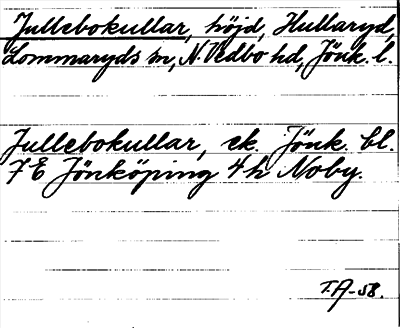 Jullebokullar, höjd, Hullaryd,
Lommaryds sn, N. Vedbo hd, Jönk. l.
Jullebokullar, ek. Jönk. bl.
7 E Jönköping 4 h Noby.
T.A-58.